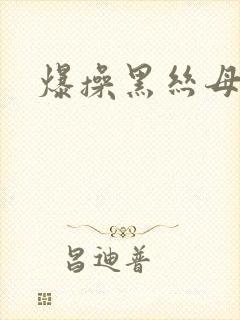 爆操黑丝母
昌迪普